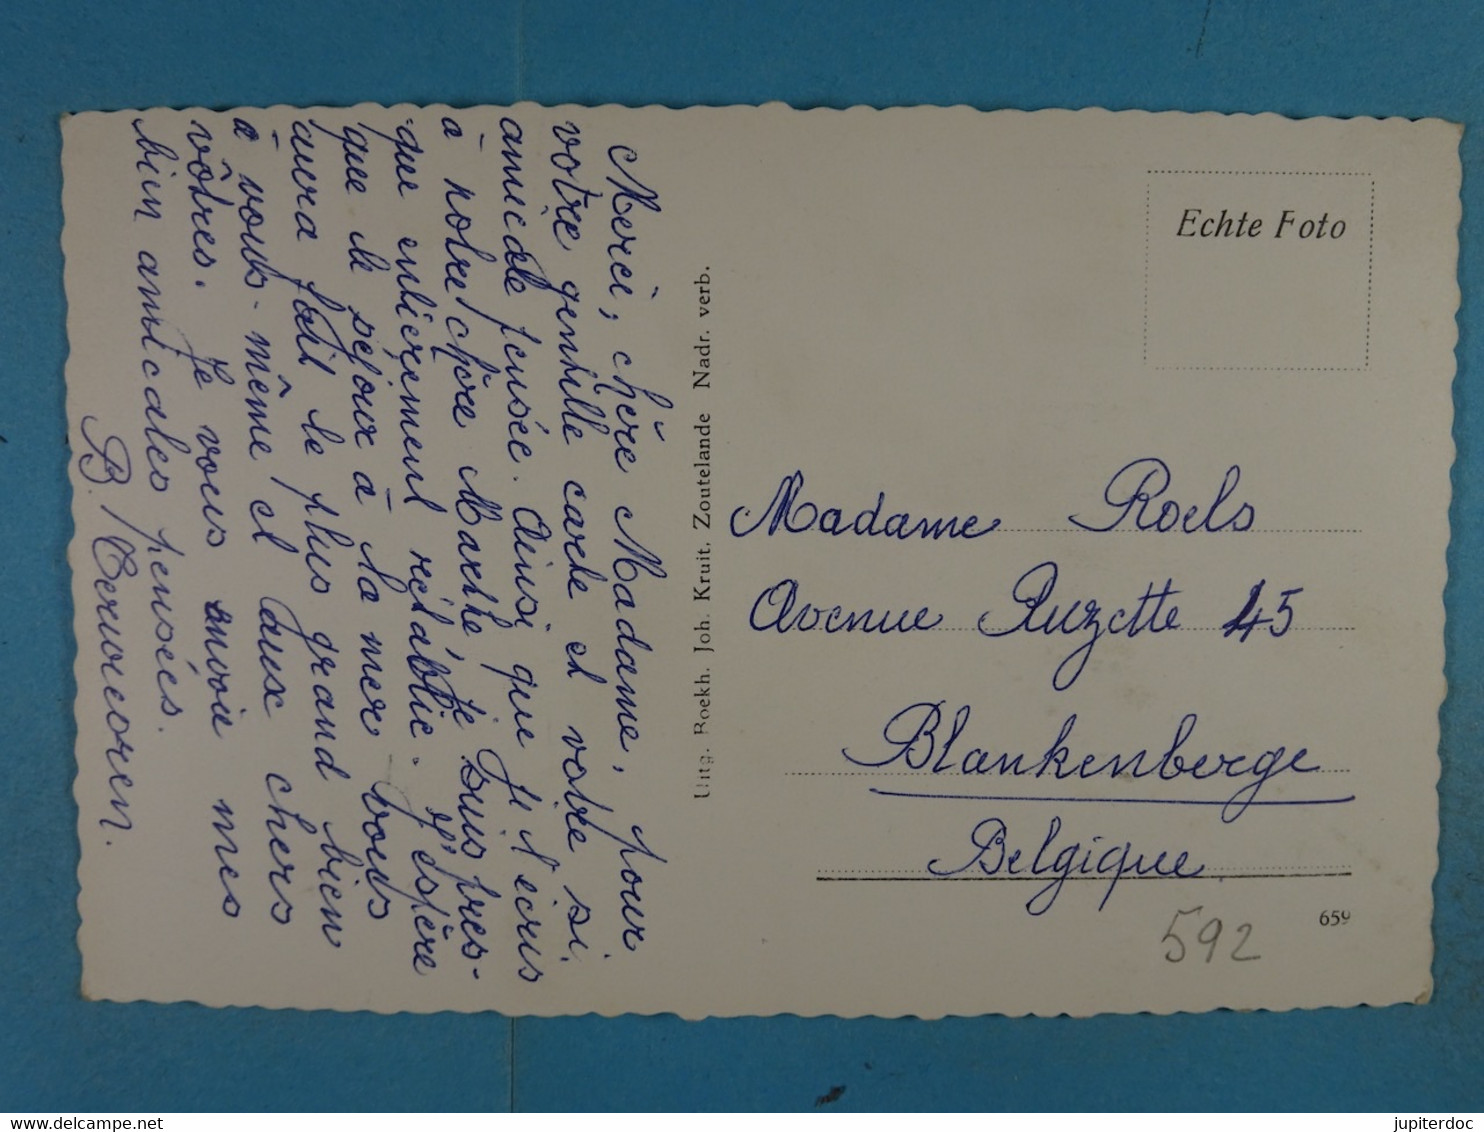 Merci, chère Madame, pour
votre gentille carte et votre si
amicale pensée. Ainsi que je l'écris
à notre chère Marthe, je suis pres-
que entièrement rétablie. J'espère
que le séjour à la mer vous
aura fait le plus grand bien
à vous-même et aux chers
vôtres. Je vous envoie mes
bien amicales pensées.
B.
Uitg. Boekh. Joh. Kruit. Zoutelande Nadr. verb.
Echte Foto
Madame Roels
Avenue Ruzette 45
Blankenberge
Belgique
659
592
jupiterdoc